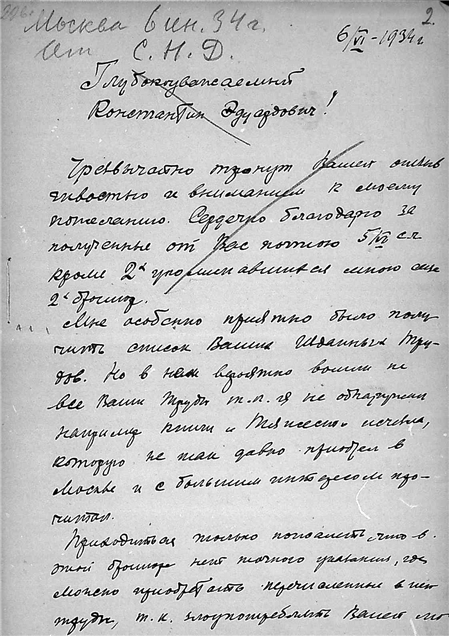 Москва 6 ин. 34 г. 2.
От С. Н. Д. 6/VI - 1934 г
Глубокоуважаемый
Константин Эдуардович!
Чрезвычайно тронут Вашей
и вниманием к моему
пожеланию. Сердечно благодарю за
полученные от Вас почтою 5/VI с.г.
кроме 2х упоминавшихся мною еще
2х брошюр.
Мне особенно приятно было полу
чить список Ваших изданных Тру
дов. Но в нем вероятно вошли не
все Ваши Труды т.к. я не обнаружил
например книги „Тяжесть исчезла",
которую не так давно приобрел в
Москве и с большим интересом про
читал.
Приходиться только пожалеть, что в
этой брошюре нет точного указания, где
можно приобретать перечисленные в ней
труды, т.к. злоупотреблять Вашей